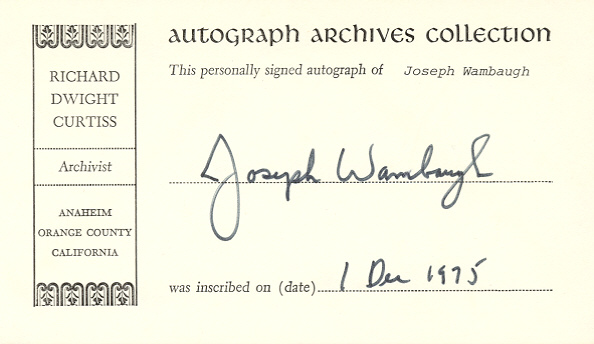 RICHARD
DWIGHT
CURTISS
Archivist
ANAHEIM
ORANGE COUNTY
CALIFORNIA
autograph archives collection
This personally signed autograph of Joseph Wambaugh
Joseph Wambaugh
was inscribed on (date) 1 Dec 1975